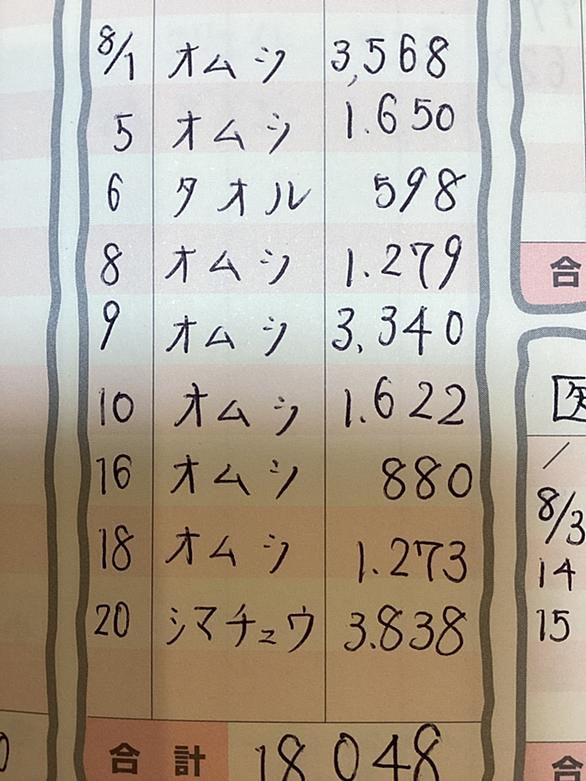 8/1 オムツ 3,568
5 オムツ 1.650
6 タオル 598
8 オムツ 1.279
9 オムツ 3,340
10 オムツ 1.622
16 オムツ 880
18 オムツ 1.273
20 シマチュウ 3.838
合計 18048
合
8/3
14
15
合